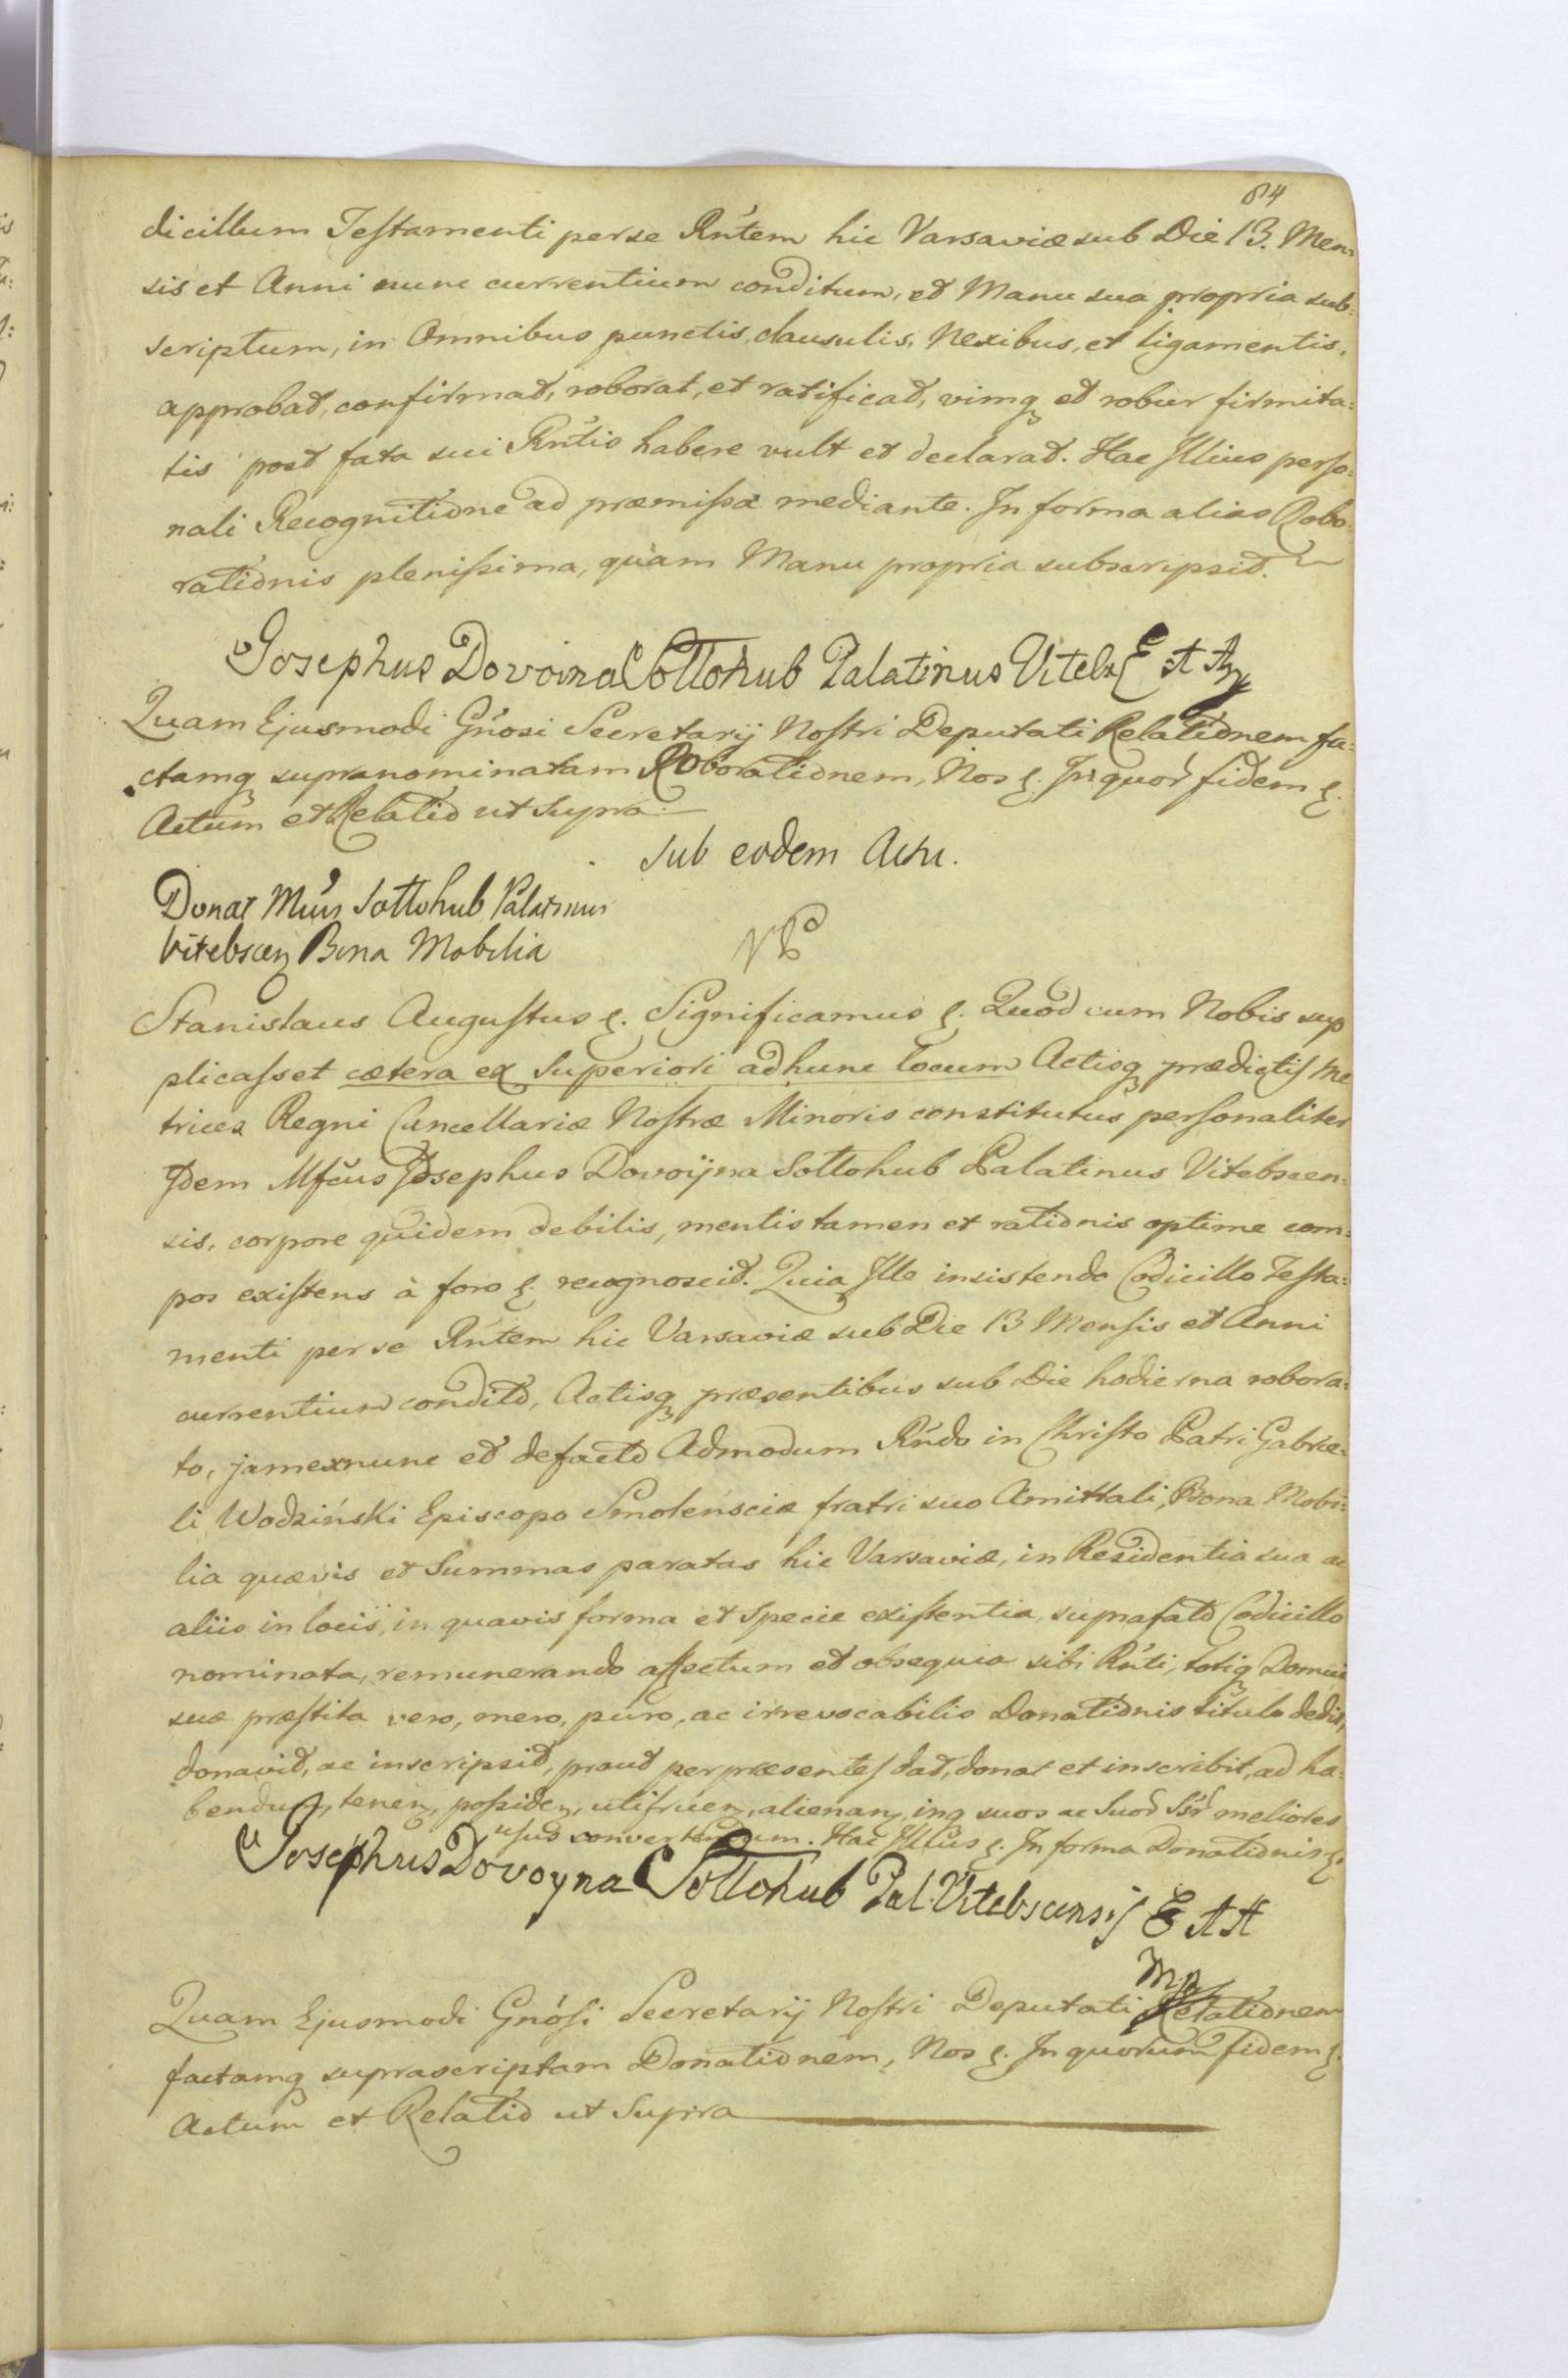 84
dicillum Testamenti per se Rńtem hic Varsaviæ sub Die 13. Men-
sis et Anni nunc currentium conditum, et Manu sua propria sub:
scriptum, in Omnibus punctis, clausulis, Nexibus, et ligamentis,
approbat, confirmat, roborat, et ratificat, vimq et robur firmita:
tis post fata sui Rńtis habere vult et declarat. Hac Illius perso:
nali Recognitione ad præmissa mediante. In forma alias Robo:
rationis plenissima, quam Manu propria subscripsit.
Josephus Dovoina Sollohub Palatinus Viteb E A A
Quam Ejusmodi Gńosi Secretarij Nostri Deputati Relationem fa:
ctamq supranominatam Roborationem, Nos &. In quor fidem &.
Actum et Relatio ut Supra
Sub eodem Actu.
Donat Mcus Sollohub Palatinus
Vitebscen Bona Mobilia
Stanislaus Augustus &. Significamus &. Quod cum Nobis sup
plicasset cætera ex Superiori ad hunc locum Actisq prædictis Me
trices Regni Cancellariæ Nostræ Minoris constitutus personaliter
Idem Mfcus Josephus Dovoÿna Sollohub Palatinus Vitebscen:
sis, corpore quidem debilis, mentis tamen et rationis optime com:
pos existens à foro &. recognoscit. Quia Ille insistendo Codicillo Testa:
menti per se Rńtem hic Varsaviæ sub Die 13 Mensis et Anni
currentium condito, Actisq præsentibus sub Die hodierna robora:
to, jam ex nunc et de facto Admodum Rńdo in Christo Patri Gabrie:
li Wodziński Episcopo Smolensciæ fratri suo Amittali, Bona Mobi:
lia quævis et Summas paratas hic Varsaviæ, in Residentia sua ac
aliis in locis, in quavis forma et Specie existentia, suprafato Codicillo
nominata, remunerando affectum et obsequia sibi Rńti, totiq Domui
suæ præstita vero, mero, puro, ac irrevocabilis Donationis titulo dedit,
donavit, ac inscripsit, prout per præsentes dat, donat et inscribit, ad ha:
bendum, tenen, possiden, utifruen, alienan, inq suos ac Suor Ssr meliores
usus convertendum. Hac Illius &. In forma Donationis &.
Josephus Dovoyna Sollohub Pal: Vitebscensis E A A
mp
Quam Ejusmodi Gnósi Secretarij Nostri Deputati Relationem
factamq suprascriptam Donationem, Nos &. In quorum fidem &.
Actum et Relatio ut Supra